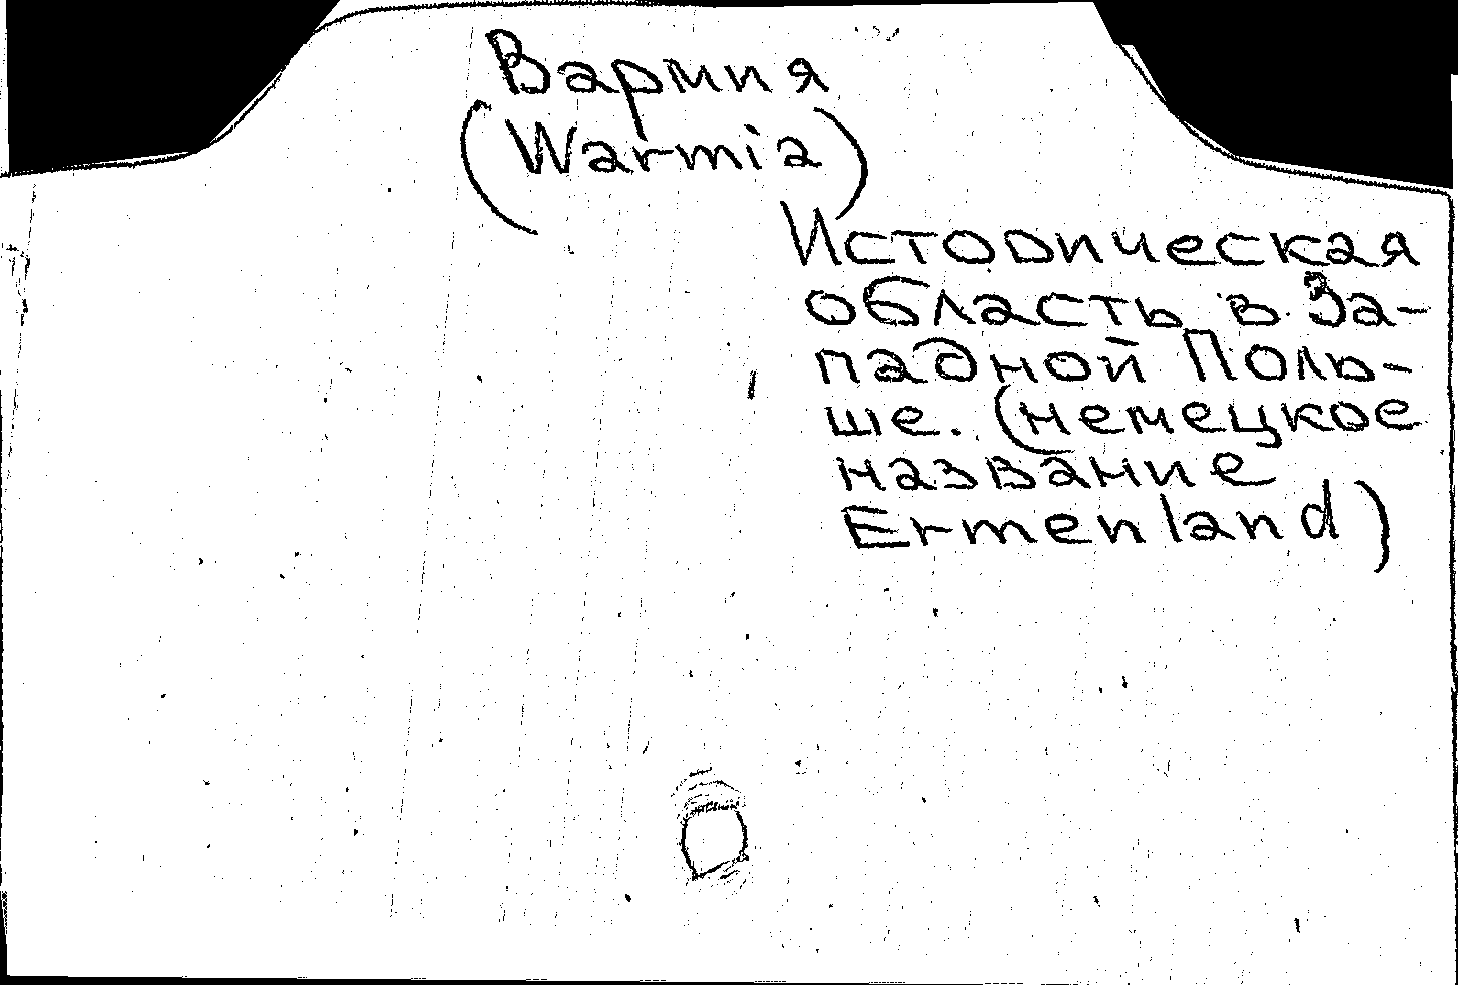 Вармия
(Warmia)
Историческая
область в За-
падной Поль-
ше. (немецкое
название
Ermenland)